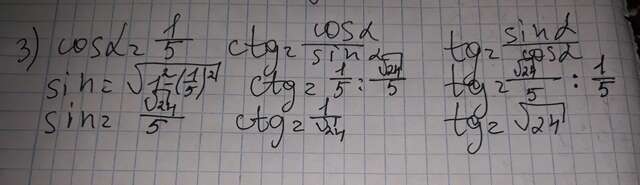 3) cosα = 1/5 ctg = cosα/sinα tg = sinα/cosα
sin = √(1² - (1/5)²) ctg = 1/5 : √24/5 tg = √24/5 : 1/5
sin = √24/5 ctg = 1/√24 tg = √24